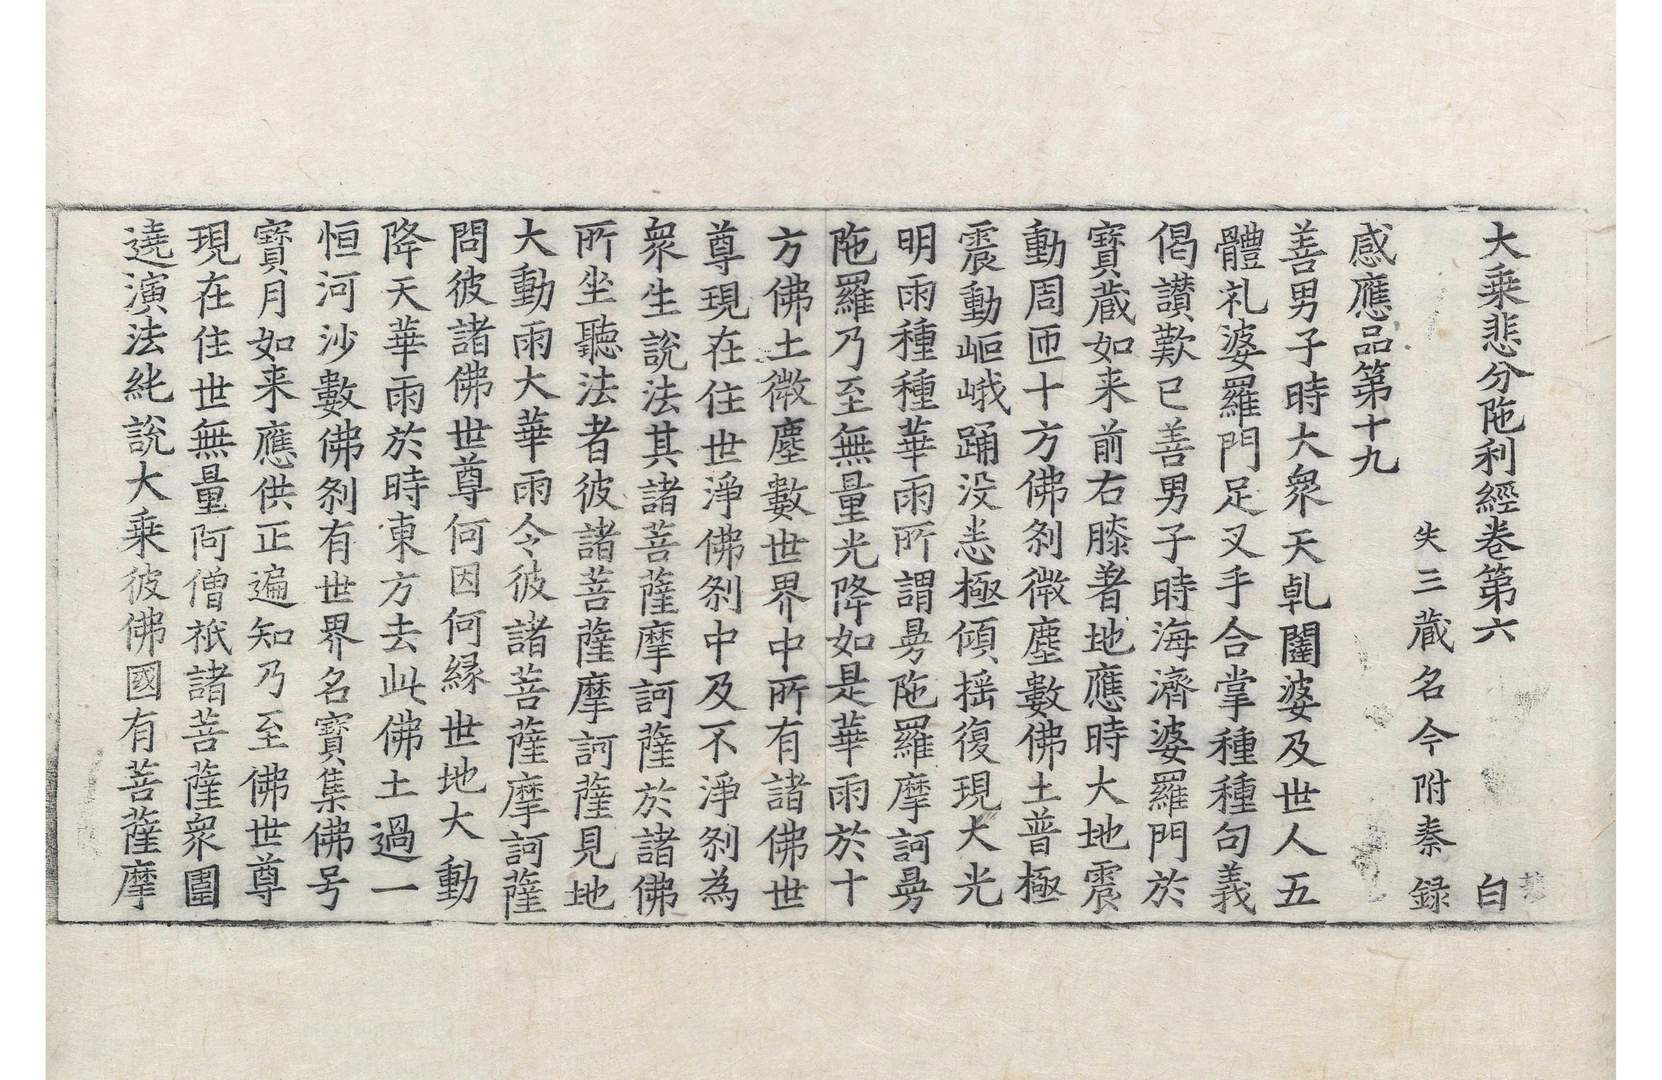 大乘悲分陁利經卷第六 白
失三藏名今附秦録
感應品第十九
善男子時大衆天乹闥婆及世人五
體礼婆羅門足叉手合掌種種句義
偈讃歎已善男子時海濟婆羅門於
寳蔵如来前右膝着地應時大地震
動周匝十方佛刹微塵數佛土普極
震動岠峨踊没恙極傾揺復現大光
明雨種種華雨所謂昜陁羅摩訶昜
陁羅乃至無量光降如是華雨於十
方佛土微塵數世界中所有諸佛世
尊現在住世淨佛刹中及不淨刹為
衆生説法其諸菩薩摩訶薩於諸佛
所坐聽法者彼諸菩薩摩訶薩見地
大動雨大華雨今彼諸菩薩摩訶薩
問彼諸佛世尊何因何縁世地大動
降天華雨於時東方去此佛土過一
恒河沙數佛刹有世界名寳集佛号
寳月如来應供正遍知乃至佛世尊
現在住世無量阿僧祇諸菩薩衆圍
遶演法純説大乘彼佛國有菩薩摩